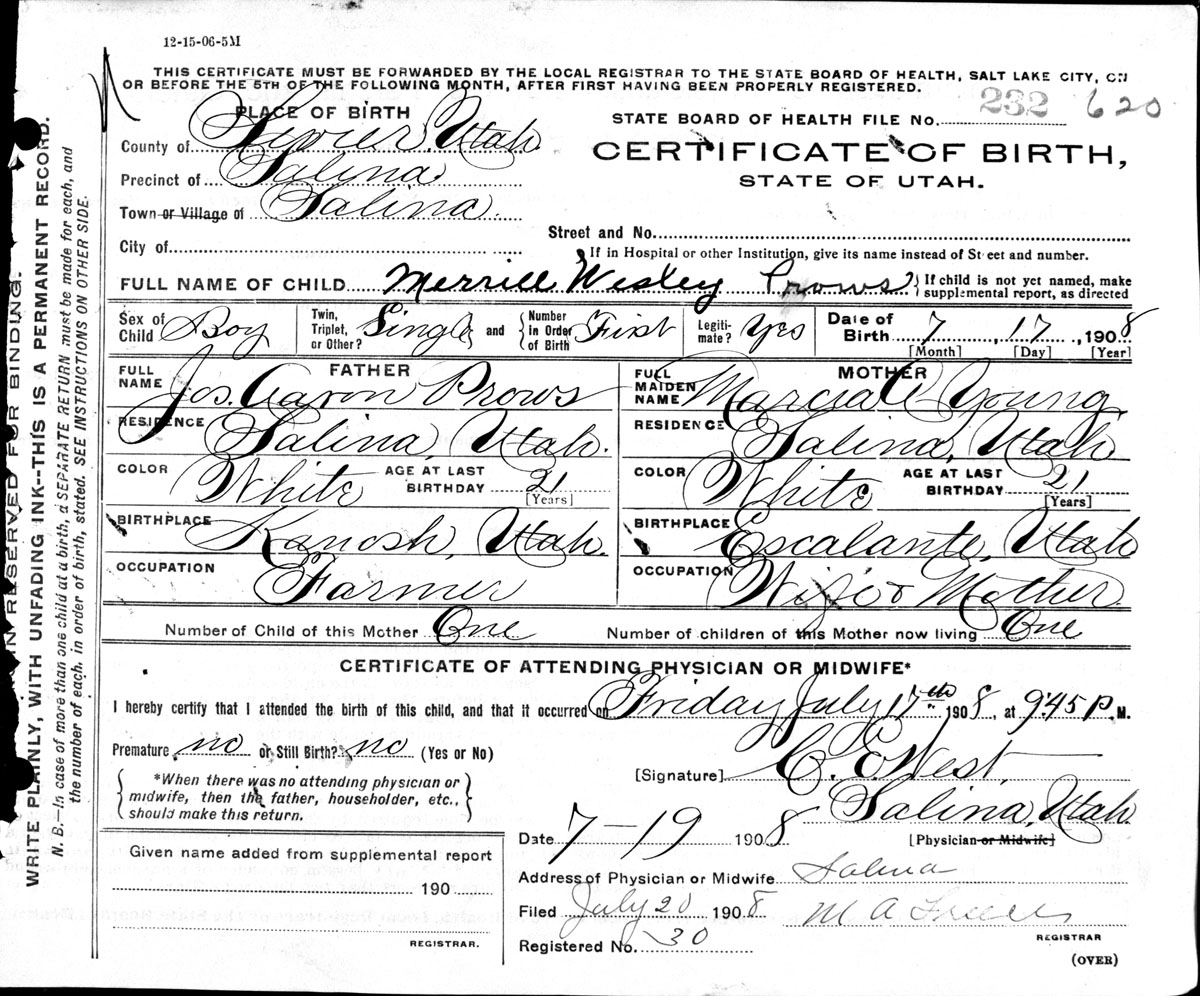 12-15-06-5M
THIS CERTIFICATE MUST BE FORWARDED BY THE LOCAL REGISTRAR TO THE STATE BOARD OF HEALTH, SALT LAKE CITY, ON
OR BEFORE THE 5TH OF THE FOLLOWING MONTH, AFTER FIRST HAVING BEEN PROPERLY REGISTERED.
PLACE OF BIRTH
STATE BOARD OF HEALTH FILE NO. 232 620
County of Sevier, Utah
CERTIFICATE OF BIRTH,
Precinct of Salina
STATE OF UTAH.
Town or Village of Salina
Street and No.
City of
If in Hospital or other Institution, give its name instead of Street and number.
FULL NAME OF CHILD Merrill Wesley Prows { If child is not yet named, make supplemental report, as directed
Sex of Child Boy Twin, Triplet, or Other? Single and { Number in Order of Birth First Legiti-mate? Yes Date of Birth 7, 17, 1908
[Month] [Day] [Year]
FATHER MOTHER
FULL NAME Jos. Aaron Prows FULL MAIDEN NAME Marcia Young
RESIDENCE Salina, Utah. RESIDENCE Salina, Utah
COLOR White AGE AT LAST BIRTHDAY 21 COLOR White AGE AT LAST BIRTHDAY 21
[Years] [Years]
BIRTHPLACE Kanosh, Utah. BIRTHPLACE Escalante, Utah
OCCUPATION Farmer OCCUPATION Wife & Mother
Number of Child of this Mother One Number of children of this Mother now living One
CERTIFICATE OF ATTENDING PHYSICIAN OR MIDWIFE*
I hereby certify that I attended the birth of this child, and that it occurred on Friday July 17th 1908, at 9:45 P. M.
Premature no or Still Birth? no (Yes or No)
[Signature] C. E. West,
*When there was no attending physician or
midwife, then the father, householder, etc.,
should make this return.
Salina, Utah
Date 7-19 1908 [Physician or Midwife]
Given name added from supplemental report
190
REGISTRAR.
Address of Physician or Midwife Salina
Filed July 20 1908 M A
Registered No. 30
REGISTRAR
(OVER)
IN RESERVED FOR BINDING.
WRITE PLAINLY, WITH UNFADING INK--THIS IS A PERMANENT RECORD.
N. B.—In case of more than one child at a birth, a SEPARATE RETURN must be made for each, and
the number of each, in order of birth, stated. SEE INSTRUCTIONS ON OTHER SIDE.